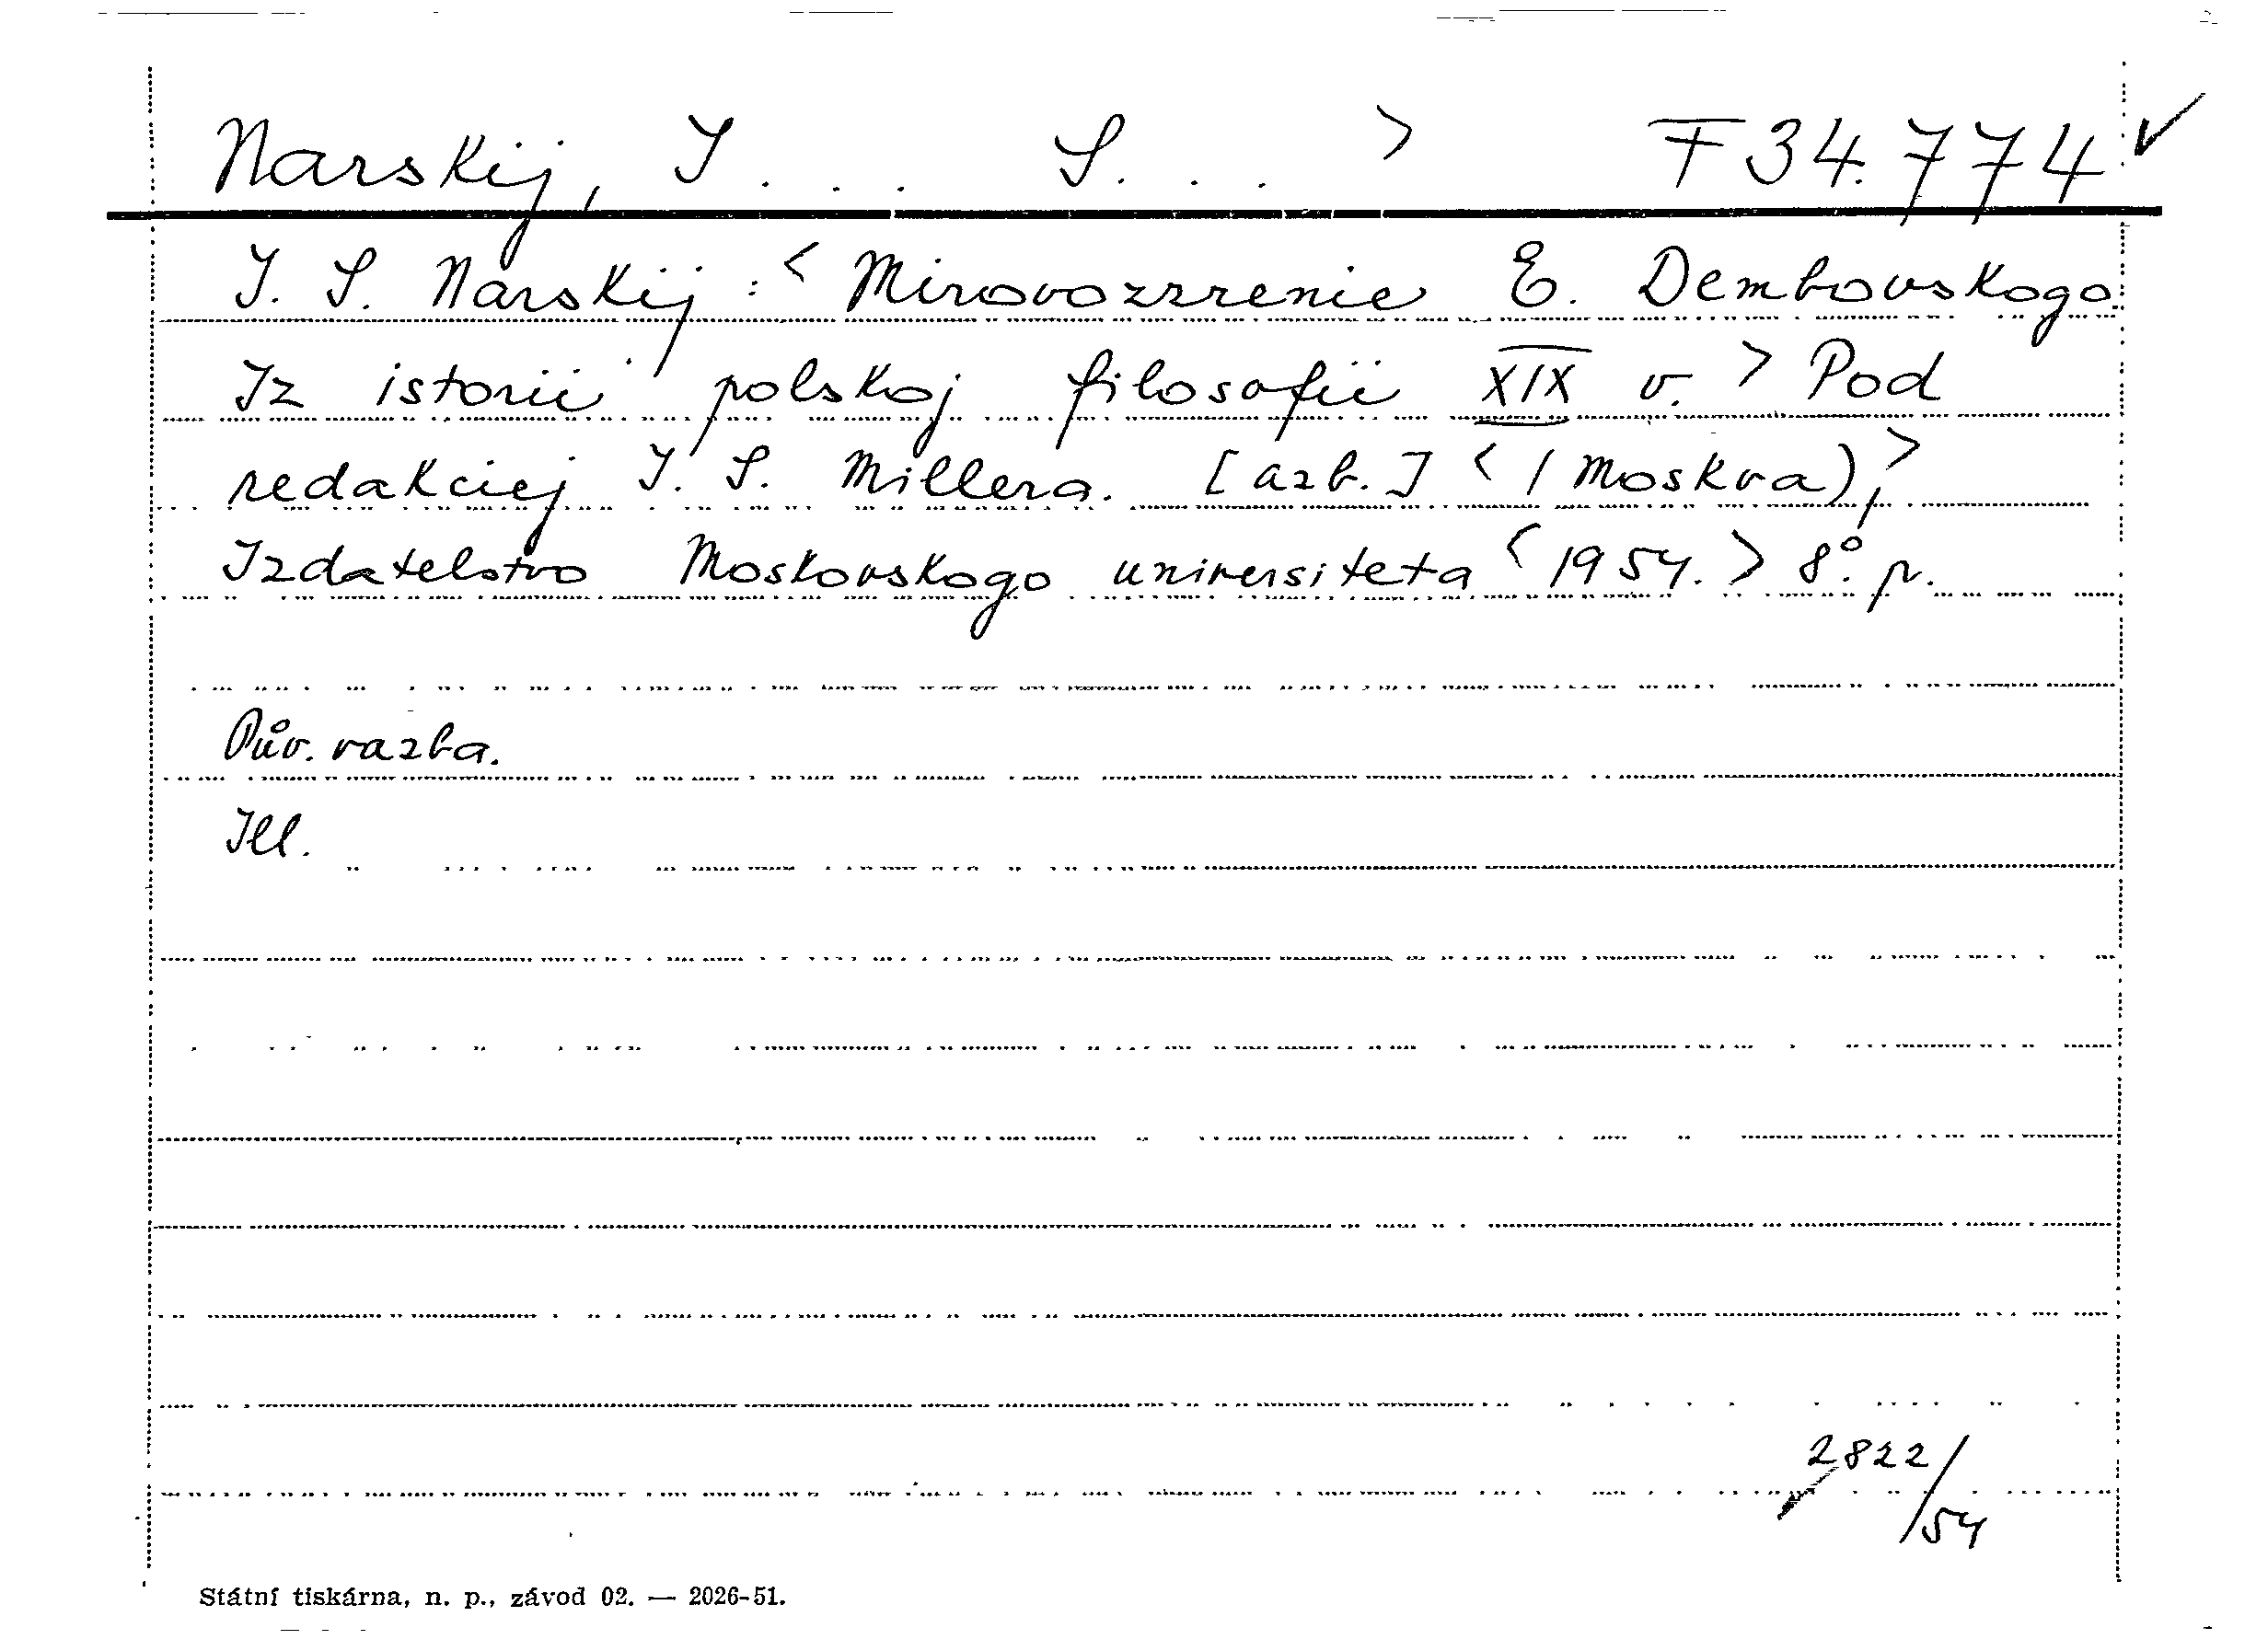 Narskij, I . . . S. . . > F 34.774 ✓
I. S. Narskij: < Mirovozzrenie E. Dembovskogo.
Iz istorii polskoj filosofii XIX v. > Pod
redakciej I. S. Millera. [azb.] < (Moskva), >
Izdatelstvo Moskovskogo universiteta < 1954. > 8°. p.
Pův. vazba.
Ill.
2822/54
Státní tiskárna, n. p., závod 02. — 2026-51.